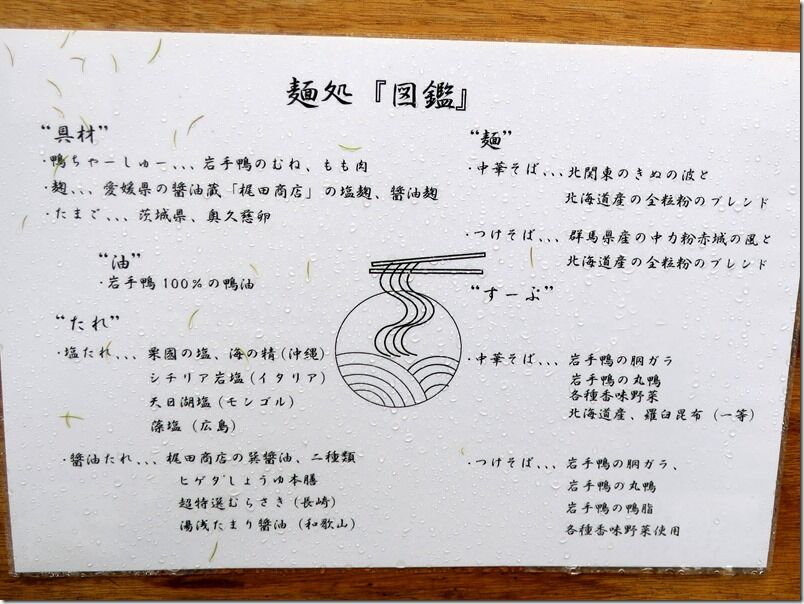 麺処『図鑑』
“具材”
・鴨ちゃーしゅー、、、岩手鴨のむね、もも肉
・麹、、、愛媛県の醬油蔵「梶田商店」の塩麹、醬油麹
・たまご、、、茨城県、奥久慈卵
“油”
・岩手鴨100%の鴨油
“たれ”
・塩たれ、、、粟國の塩、海の精(沖縄)
シチリア岩塩(イタリア)
天日湖塩(モンゴル)
藻塩(広島)
・醬油たれ、、、梶田商店の巽醬油、二種類
ヒゲタしょうゆ本膳
超特選むらさき(長崎)
湯浅たまり醬油(和歌山)
“麺”
・中華そば、、、北関東のきぬの波と
北海道産の全粒粉のブレンド
・つけそば、、、群馬県産の中力粉赤城の風と
北海道産の全粒粉のブレンド
“すーぷ”
・中華そば、、、岩手鴨の胴ガラ
岩手鴨の丸鴨
各種香味野菜
北海道産、羅臼昆布(一等)
・つけそば、、、岩手鴨の胴ガラ、
岩手鴨の丸鴨
岩手鴨の鴨脂
各種香味野菜使用